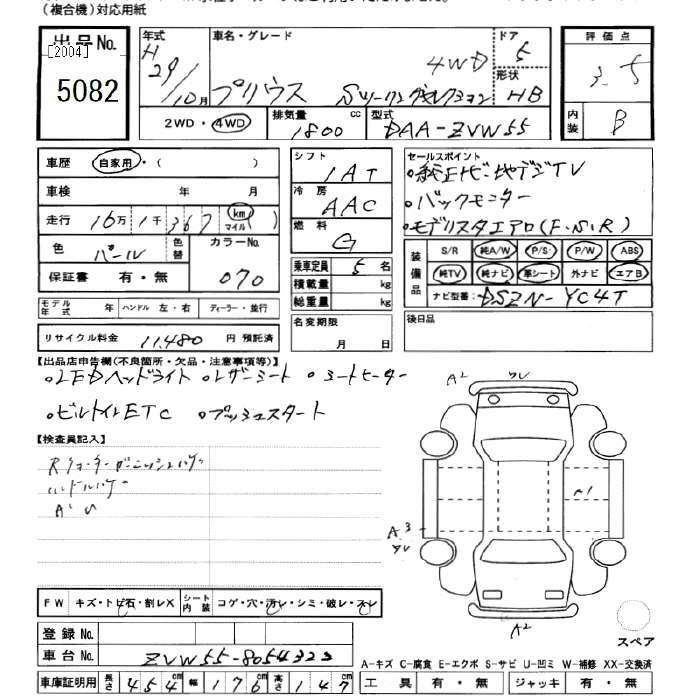 (複合機)対応用紙
出品No.
[2004]
5082
年式 H29/10月
車名・グレード
プリウス Sツーリングセレクション
4WD
ドア 5
形状 HB
2WD・4WD
排気量 1800 cc
型式 DAA-ZVW55
評価点
3.5
内装 B
車歴 自家用・( )
車検 年 月
走行 16万1千367 km マイル
色 パール
色替
カラーNo. 070
保証書 有・無
モデル年式 年 ハンドル 左・右 ディーラー・並行
リサイクル料金 11,480 円 預託済
シフト 1AT
冷房 AAC
燃料 G
乗車定員 5 名
積載量 kg
総重量 kg
名変期限
月 日
セールスポイント
・純正ナビ・地デジTV
・バックモニター
・モデリスタエアロ(F・S・R)
装備品
S/R 純A/W P/S P/W ABS
純TV 純ナビ 革シート 外ナビ エアB
ナビ型番: DSZN-YC4T
後日品
【出品店申告欄(不良箇所・欠品・注意事項等)】
・LEDヘッドライト ・レザーシート ・シートヒーター
・ビルトインETC ・プッシュスタート
【検査員記入】
Rクォーターガーニッシュハゲ
ハンドルハゲ
A' U
A2
A3
A2
FW キズ・トビ石・割レX
シート内装 コゲ・穴・汚レ・シミ・破レ・スレ
登録No.
車台No. ZVW55-8054323
車庫証明用 長さ 454cm 幅 176cm 高さ 147cm
スペア
A-キズ C-腐食 E-エクボ S-サビ U-凹ミ W-補修 XX-交換済
工具 有・無 ジャッキ 有・無